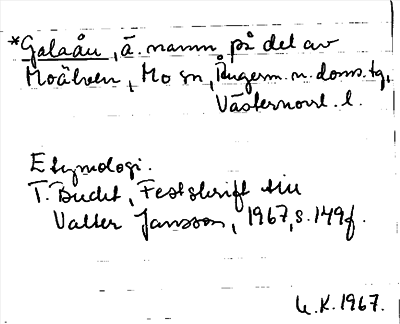 *Galaån, ä. namn på del av
Moälven, Mo sn, Ångerm. n. doms. tg,
Västernorrl. l.
Etymologi.
T. Bucht, Festskrift till
Valter Jansson, 1967, s. 149f.
U.K. 1967.